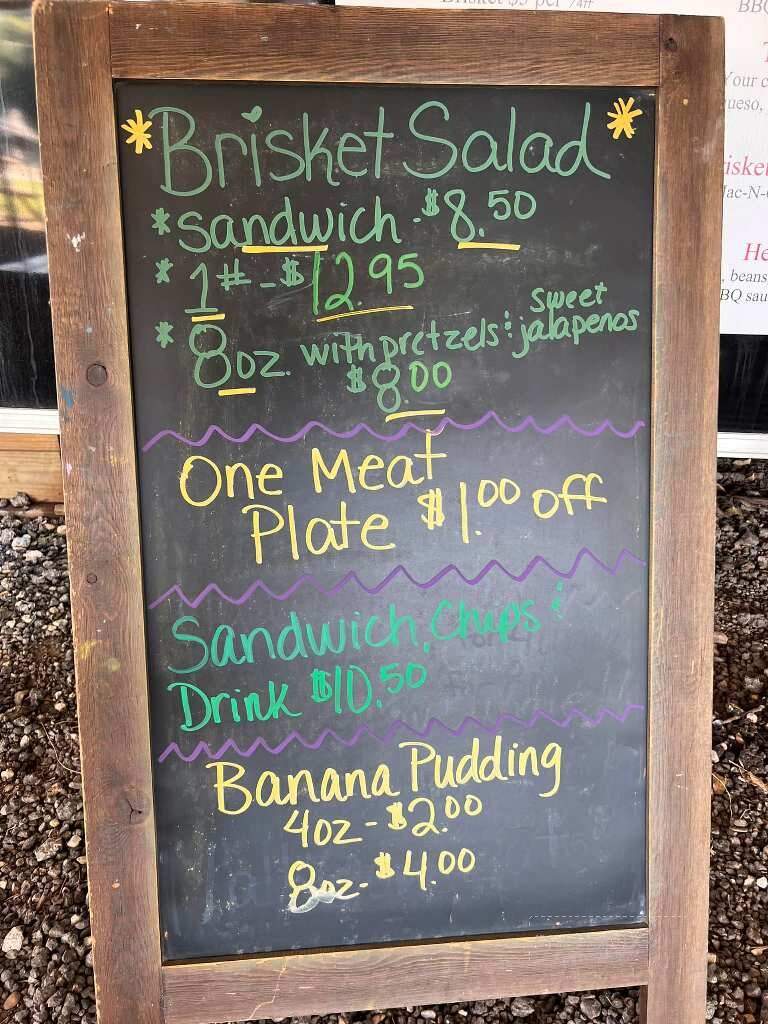 Brisket $5 per 74ff
BBQ
Brisket Salad
* Sandwich - $8.50
* 1# - $12.95
* 8oz. with pretzels & sweet jalapenos
$8.00
One Meat
Plate $1.00 off
Sandwich, Chips &
Drink $10.50
Banana Pudding
4oz - $2.00
8oz - $4.00
Your c
ueso,
isket
Mac-N-
He
, beans
BQ sau